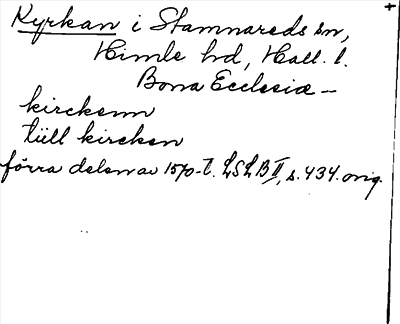 Kyrkan i Stamnareds sn,
Himle hd, Hall. l.
Bona Ecclesiæ –
kirckenn
tüll kircken
förra delen av 1570-t. LSLB II, s. 434. orig.